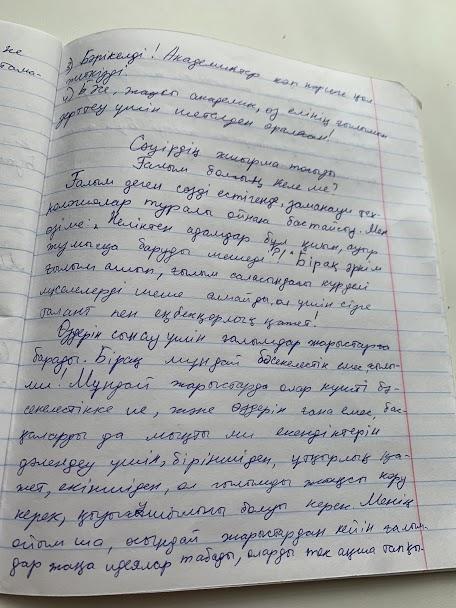 же
3) Бәрікелді! Академиктер көп нәрсеге қол
жеткізді!
4) Ә же, жақсы академик, өз елінің ғылымын
дерттеу үшін шетелден оралған!
Сәуірдің жиырма тоғызы
Ғалым болғың келе ме?
Ғалым деген сөзді естігенде, заманауи тех-
нологиялар туралы ойлана бастайсың. Мен
өзіме: „Неліктен адамдар бұл қиын, ауыр
жұмысқа баруды шешеді?!" Бірақ әркім
ғылым ашып, ғылым саласындағы күрделі
мәселелерді шеше алмайды, ол үшін сізге
талант пен еңбекқорлық қажет!
Өздерін сынау үшін ғалымдар жарыстарға
барады. Бірақ мұндай бәсекелестік емес ғылы-
ми! Мұндай жарыстарда олар күшті бә-
секелестікке ие, және өздерін ғана емес, бас-
қаларды да мықты ми екендіктерін
дәлелдеу үшін, біріншіден, ұтқырлық қа-
жет, екіншіден, ол ғылымды жақсы көру
керек, қызығушылығы болуы керек. Менің
ойымша, осындай жарыстардан кейін ғалым-
дар жаңа идеялар табады, оларды тек ақша тапқы-